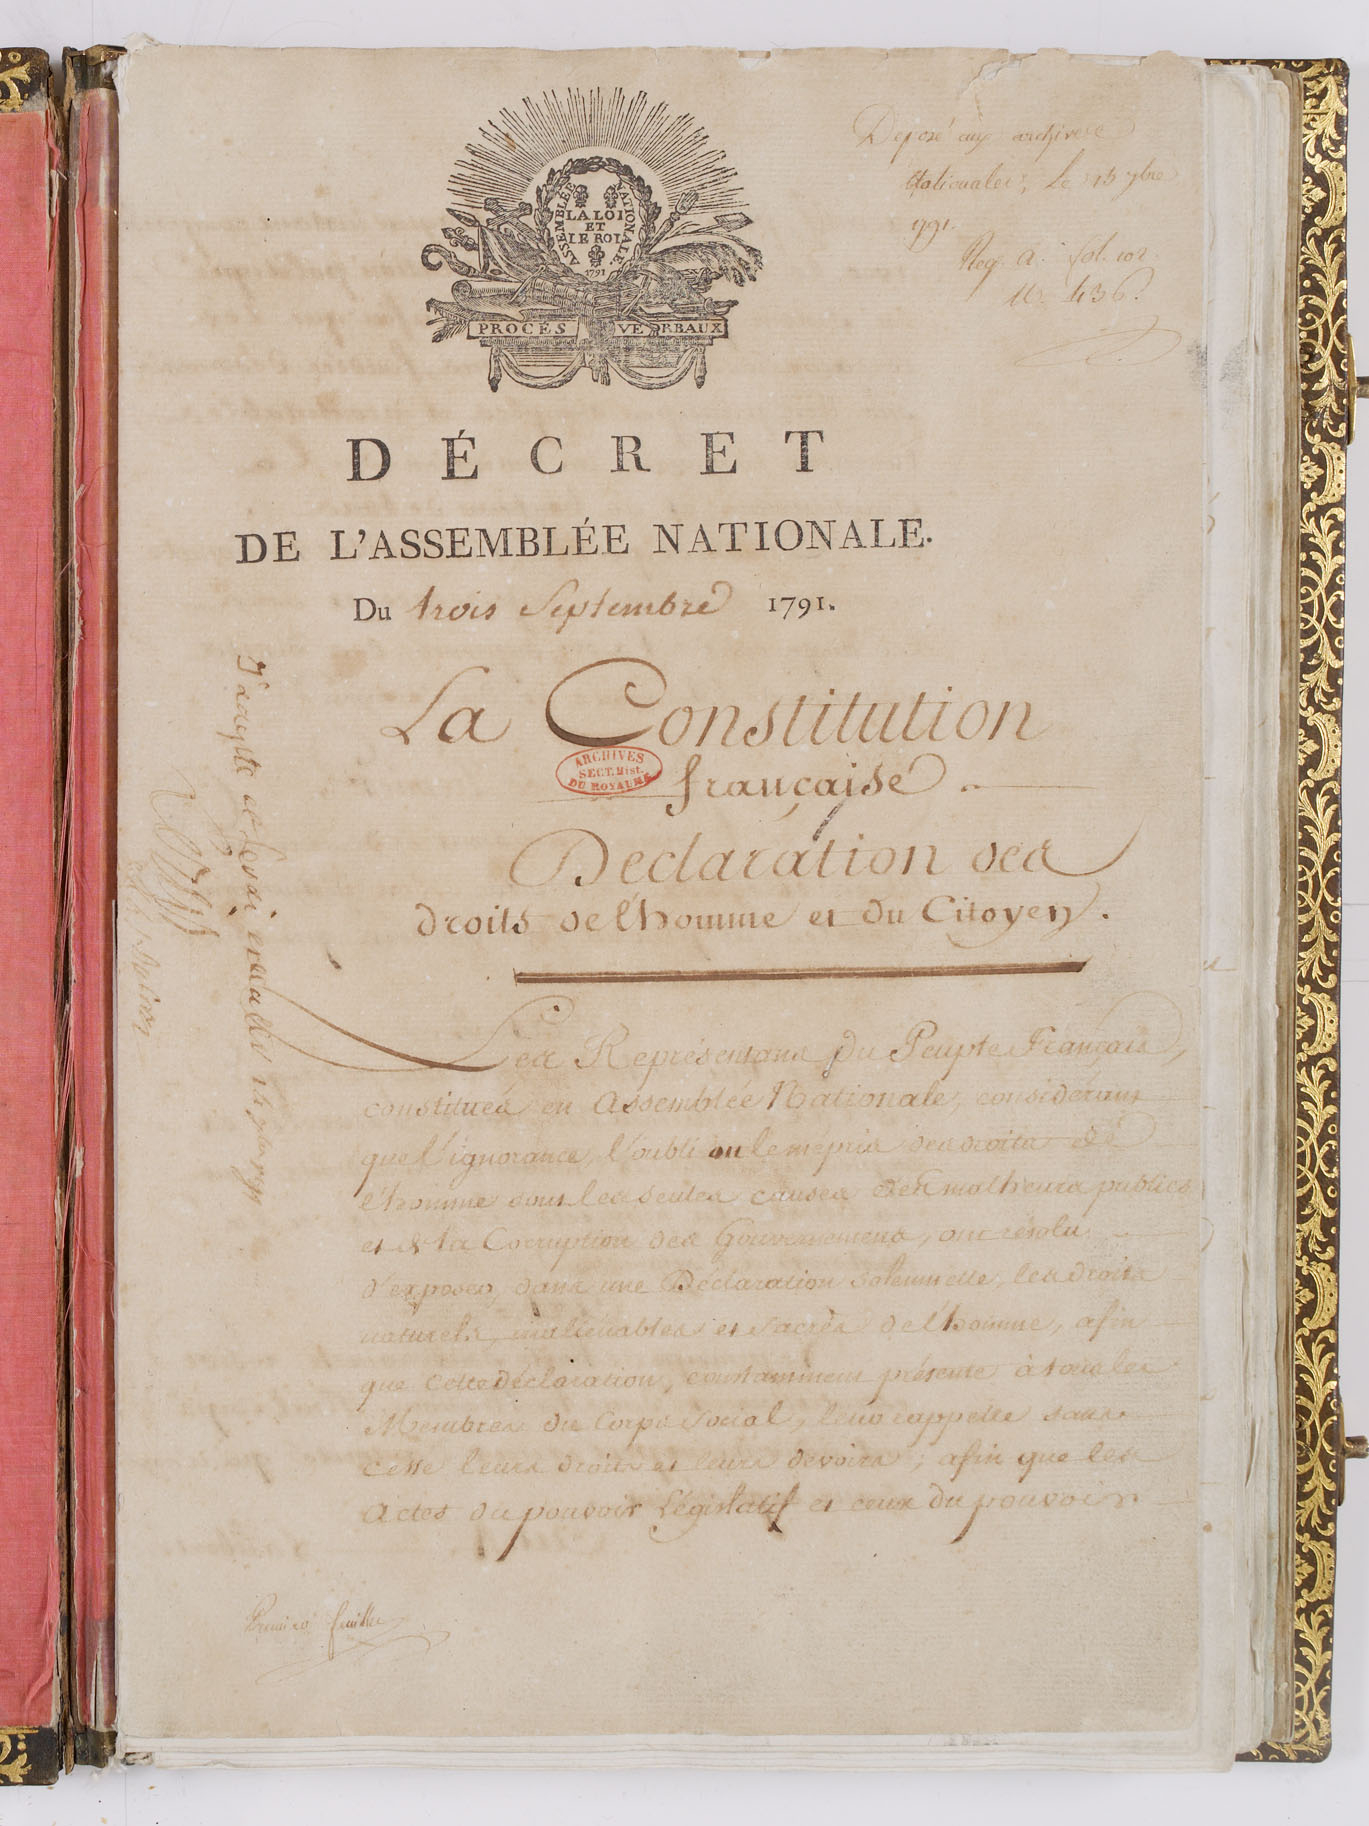 ASSEMBLÉE NATIONALE.
LA LOI
ET
LE ROI
1791
PROCÉS VERBAUX
Deposé aux archives
Nationales, Le 15 7bre
1791.
Reg. A. fol. 102
N. 436.
DÉCRET
DE L'ASSEMBLÉE NATIONALE.
Du trois Septembre 1791.
La Constitution
française.
ARCHIVES
SECT. Hist.
DU ROYAUME
Déclaration des
droits de l'homme et du Citoyen.
Les Représentans du Peuple Français,
constitués en Assemblée Nationale, considérant
que l'ignorance, l'oubli ou le mépris des droits de
l'homme sont les seules causes des malheurs publics
et de la Corruption des Gouvernemens, ont résolu
d'exposer, dans une Déclaration solennelle, les droits
naturels, inaliénables et sacrés de l'homme, afin
que cette déclaration, constamment présente à tous les
Membres du Corps social, leur rappelle sans
cesse leurs droits et leurs devoirs; afin que les
actes du pouvoir Législatif et ceux du pouvoir
J'accepte et ferai exécuter 14 7bre 1791
Louis
Premier feuillet